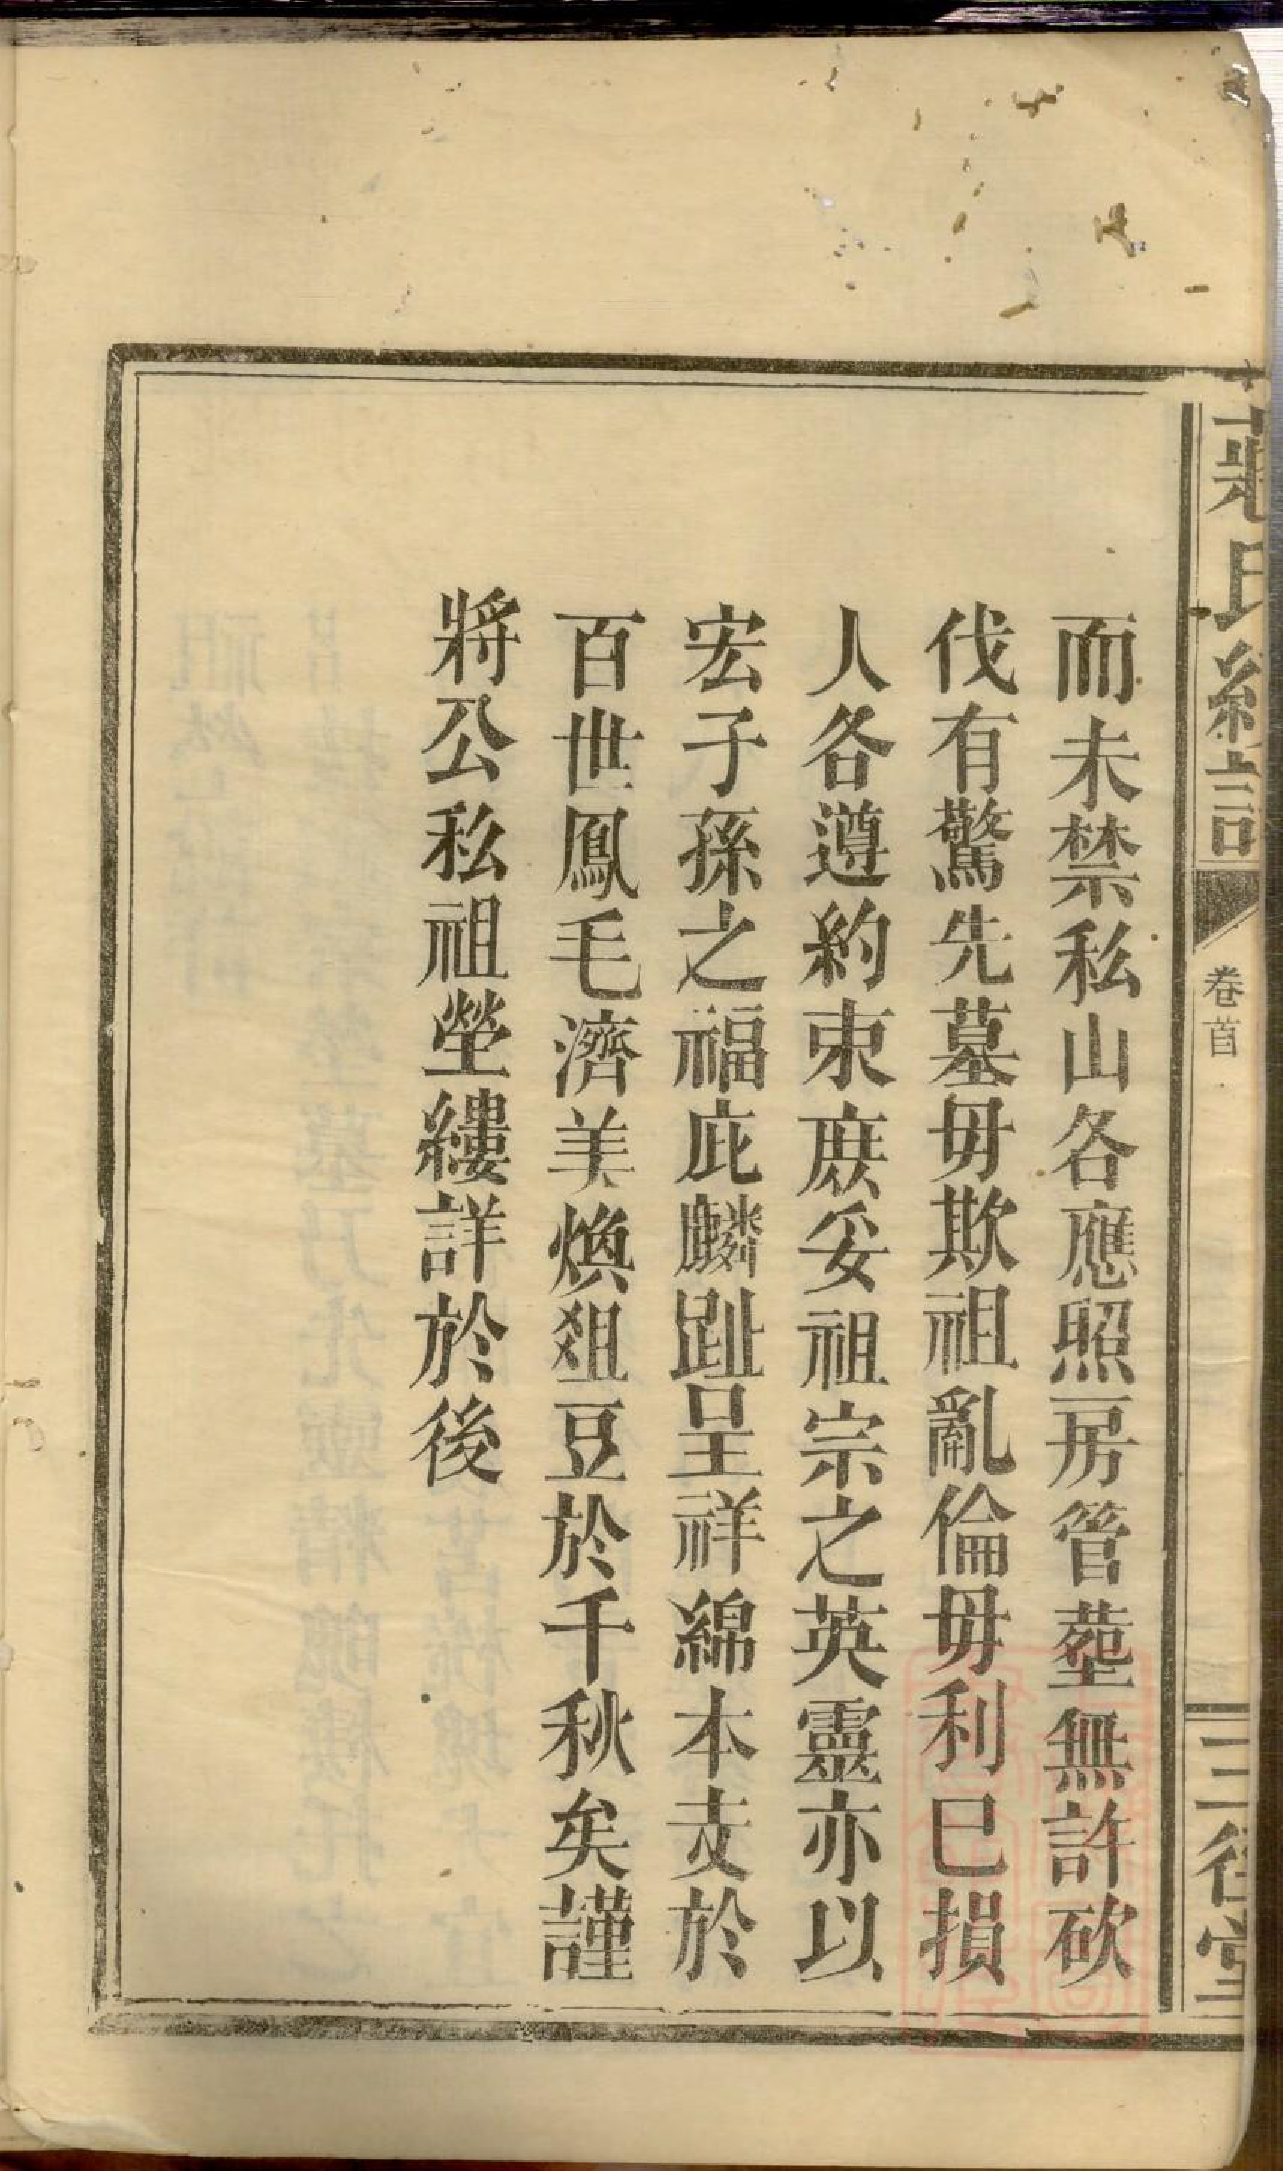 蔣氏續譜
卷首
三徑堂
而未禁私山各應照房管塟無許砍
伐有驚先墓毋欺祖亂倫毋利已損
人各遵約束庶妥祖宗之英靈亦以
宏子孫之福庇麟趾呈祥綿本支於
百世鳳毛濟美煥俎豆於千秋矣謹
將公私祖塋縷詳於後